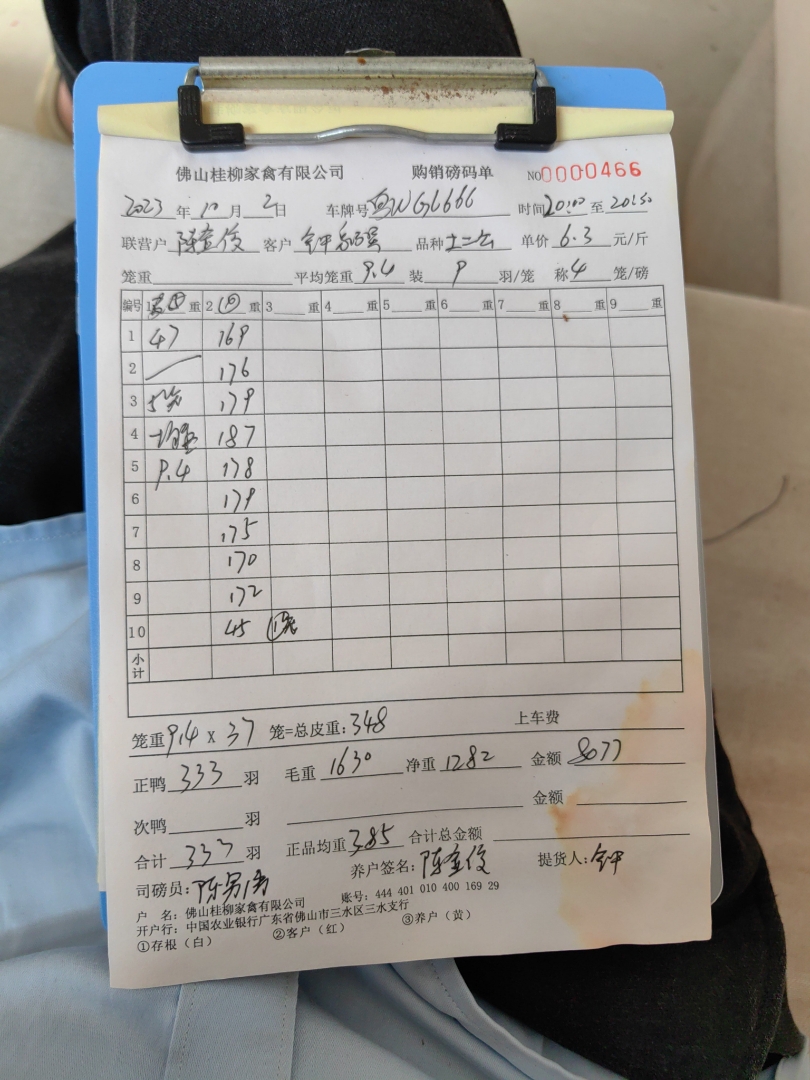 佛山桂柳家禽有限公司 购销磅码单 NO0000466
2023年10月2日 车牌号 WGL666 时间20:00至20:50
联营户 陈金俊 客户 钟 品种 单价 6.3 元/斤
笼重 平均笼重 9.4 装 9 羽/笼 称 4 笼/磅
编号 1 重 2 重 3 重 4 重 5 重 6 重 7 重 8 重 9 重
1 47 169
2 176
3 5笼 179
4 均重 187
5 9.4 178
6 179
7 175
8 170
9 172
10 45 1笼
小计
笼重 9.4 x 37 笼=总皮重: 348 上车费
正鸭 333 羽 毛重 1630 净重 1282 金额 8077
次鸭 羽 金额
合计 333 羽 正品均重 3.85 合计总金额
司磅员: 陈 养户签名: 陈金俊 提货人: 钟
户 名: 佛山桂柳家禽有限公司 账号: 444 401 010 400 169 29
开户行: 中国农业银行广东省佛山市三水区三水支行
①存根(白) ②客户(红) ③养户(黄)